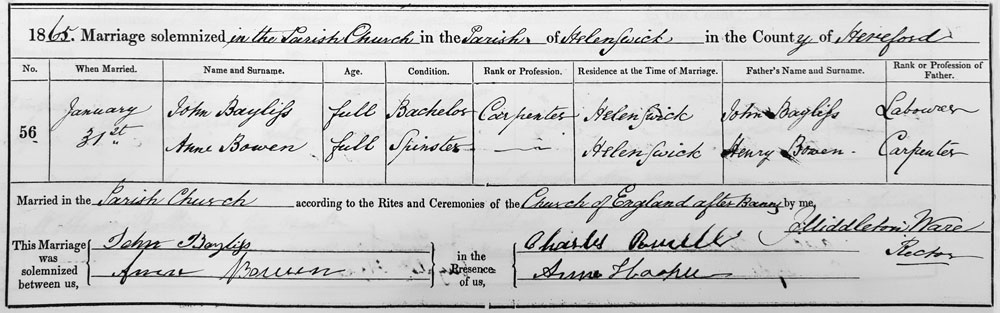 1865. Marriage solemnized in the Parish Church in the Parish of Helenswick in the County of Hereford
No. When Married. Name and Surname. Age. Condition. Rank or Profession. Residence at the Time of Marriage. Father's Name and Surname. Rank or Profession of Father.
56 January 31st
John Bayliss full Bachelor Carpenter Helenswick John Bayliss Labourer
Anne Bowen full Spinster — Helenswick Henry Bowen Carpenter
Married in the Parish Church according to the Rites and Ceremonies of the Church of England after Banns by me,
Middleton Ware
Rector
This Marriage was solemnized between us,
John Bayliss
Anne Bowen
in the Presence of us,
Charles Powell
Anne Hooper